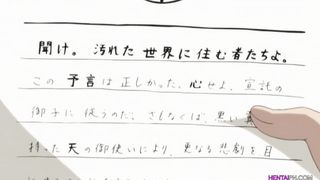 聞け。汚れた世界に住む者たちよ。
この予言は正しかった、心せよ、宣託の
御子に従うのだ、さしなくば、黒い
持った天の御使いにより、更なる悲劇を目
HENTAIPH.COM